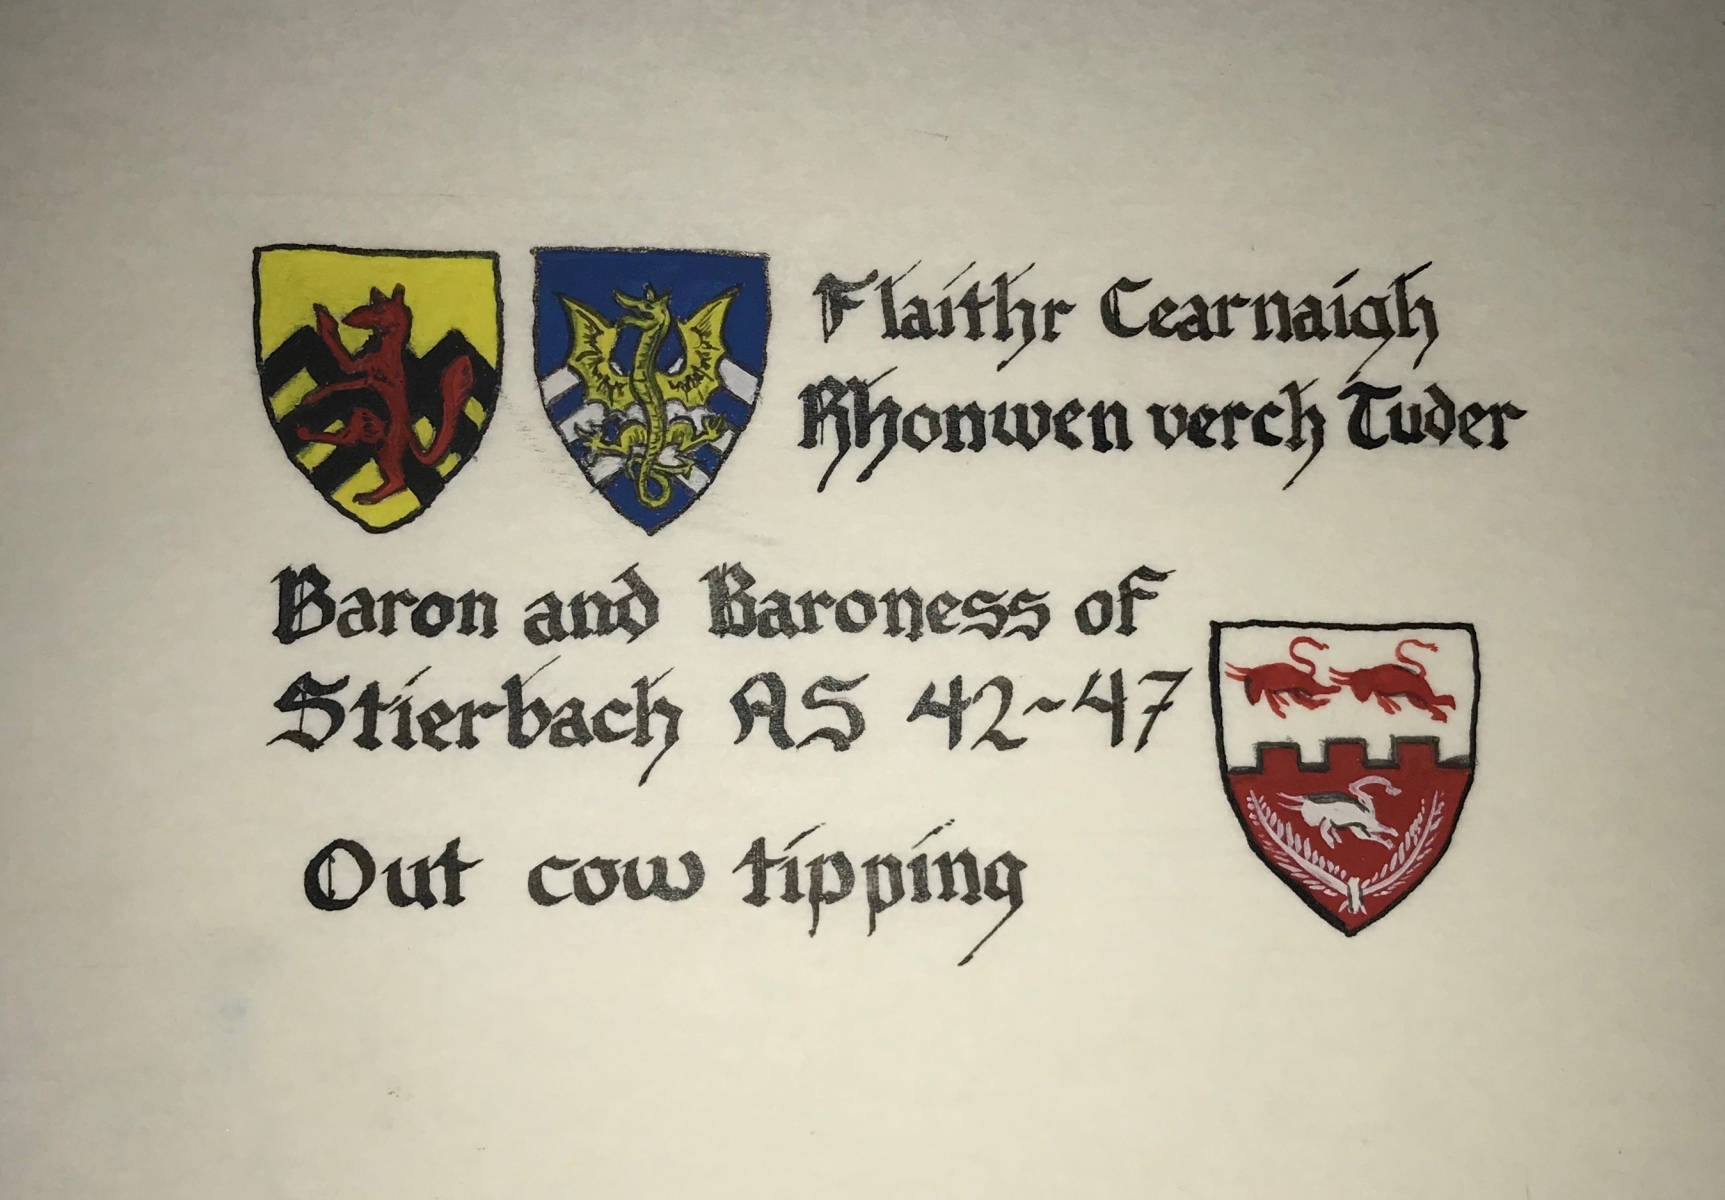 Flaithr Cearnaigh
Rhonwen verch Tuder
Baron and Baroness of
Stierbach AS 42~47
Out cow tipping